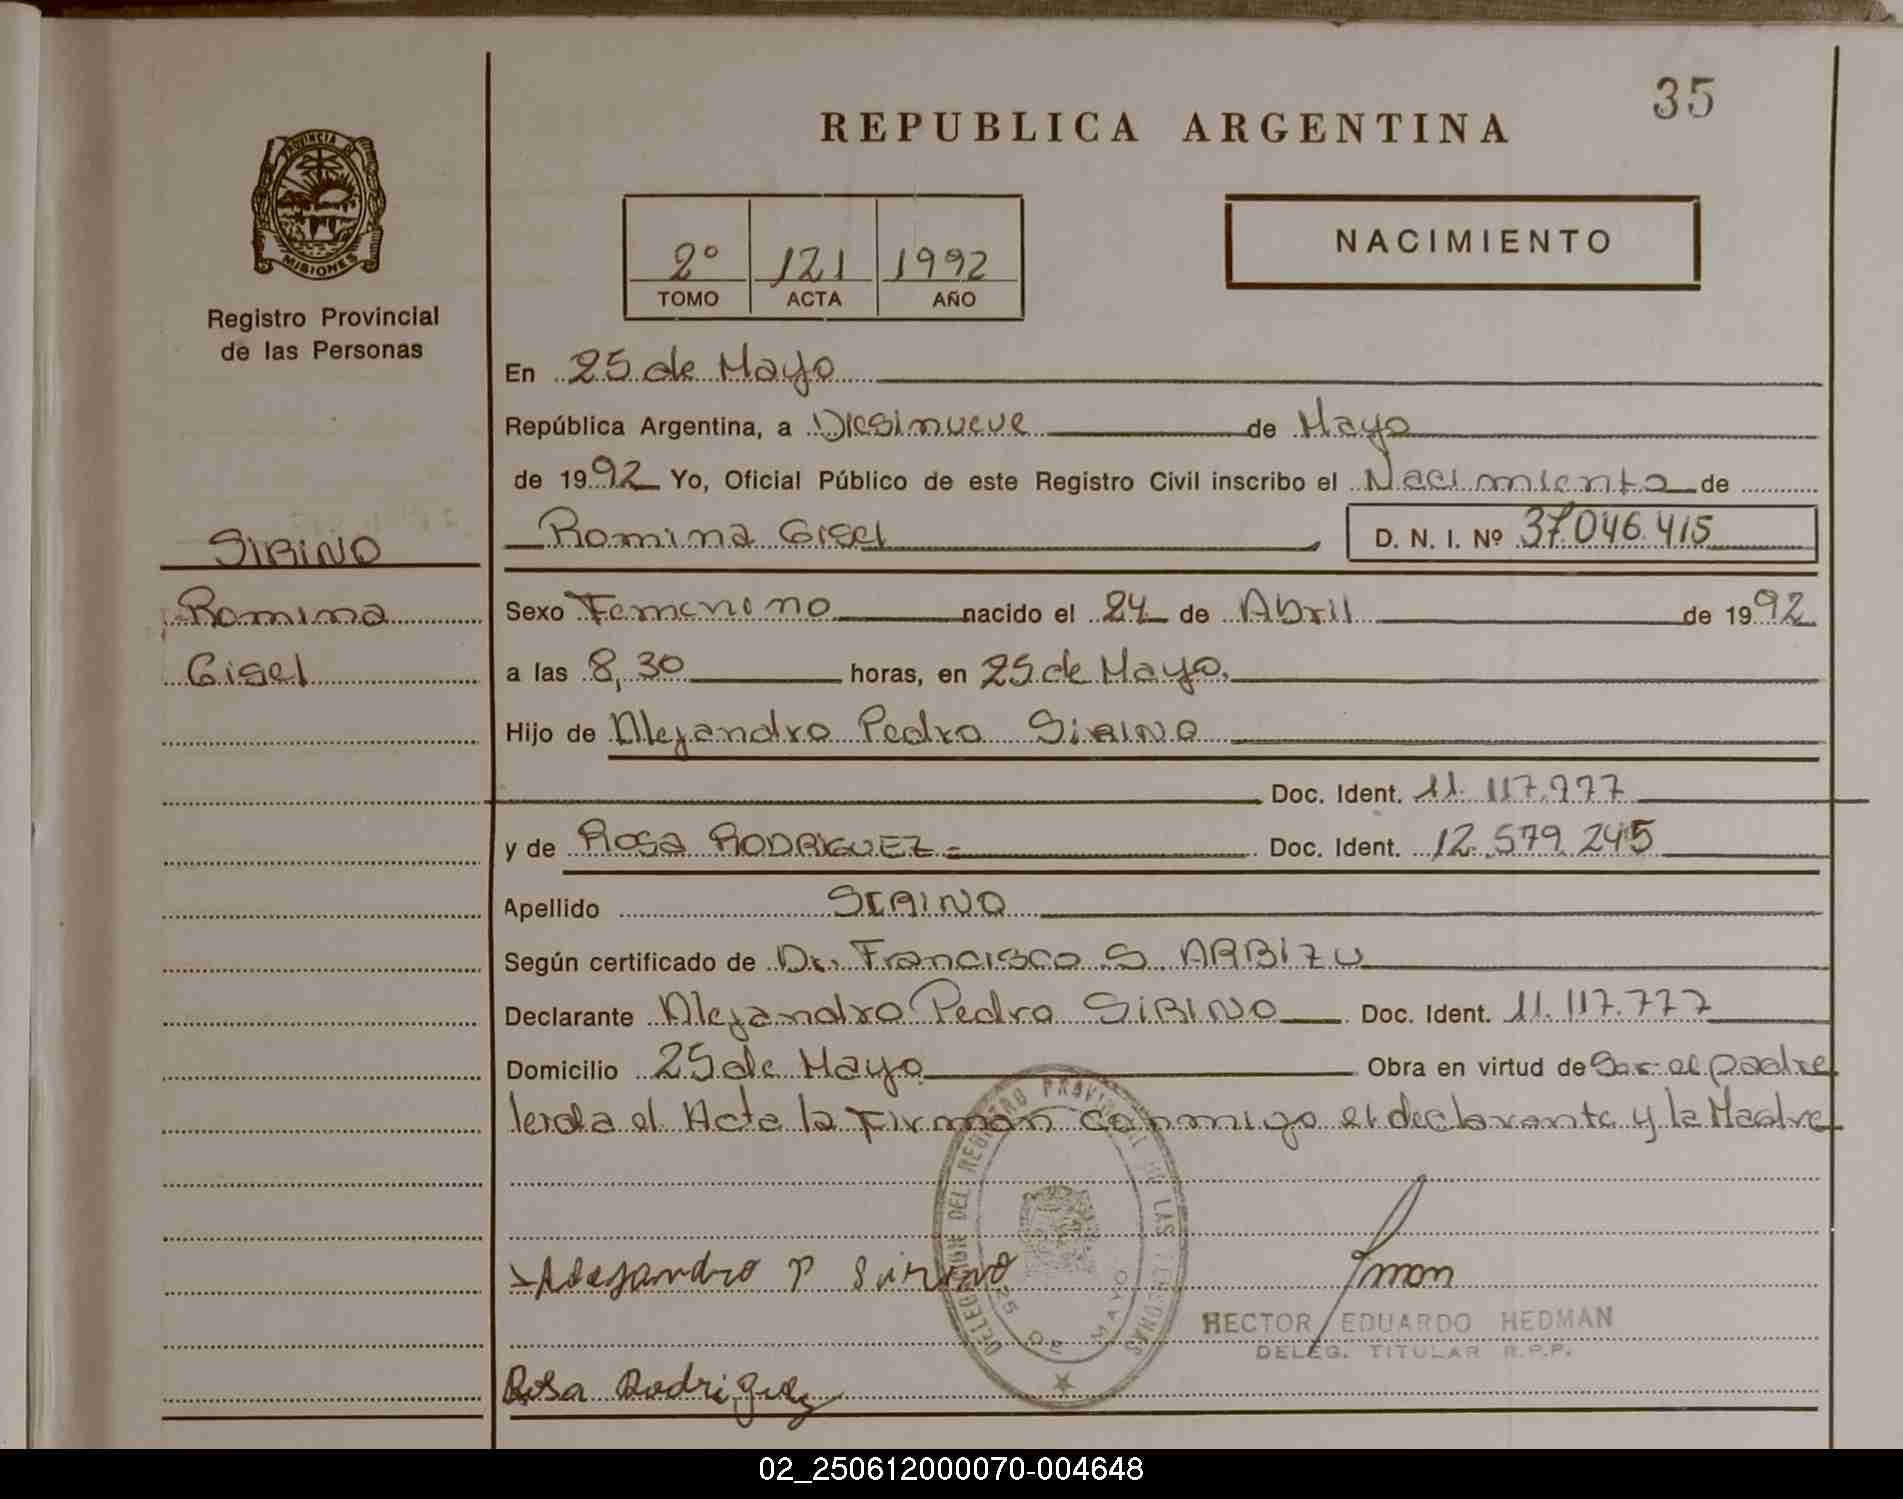 35
REPUBLICA ARGENTINA
PROVINCIA DE
MISIONES
Registro Provincial
de las Personas
2º 121 1992
TOMO ACTA AÑO
NACIMIENTO
En 25 de Mayo
República Argentina, a Diesinueve de Mayo
de 1992 Yo, Oficial Público de este Registro Civil inscribo el Nacimiento de
SIRINO
Romina Gisel D. N. I. Nº 37.046.415
Romina
Gisel
Sexo Femenino nacido el 24 de Abril de 1992
a las 8,30 horas, en 25 de Mayo.
Hijo de Alejandro Pedro SIRINO
Doc. Ident. 11.117.777
y de ROSA RODRIGUEZ.= Doc. Ident. 12.579.245
Apellido SIRINO
Según certificado de Dr. Francisco S. ARBIZU
Declarante Alejandro Pedro SIRINO Doc. Ident. 11.117.777
Domicilio 25 de Mayo Obra en virtud de Ser el padre
leida el Acta la Firman conmigo el declarante y la Madre
DELEGACION DEL REGISTRO PROVINCIAL DE LAS PERSONAS
25 DE MAYO
Alejandro P Sirino
HECTOR EDUARDO HEDMAN
DELEG. TITULAR R.P.P.
Rosa Rodriguez
02_250612000070-004648